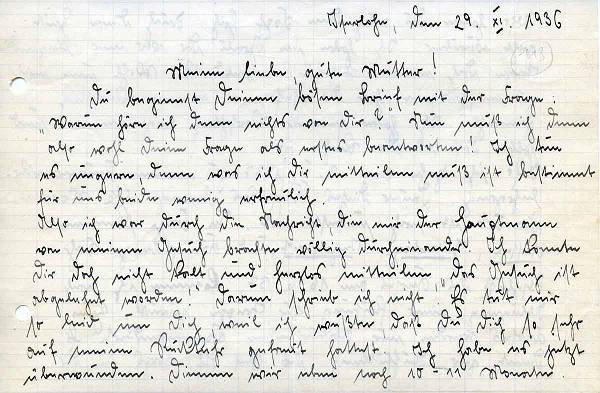 Iserlohn, den 29. XI. 1936
Meine liebe, gute Mutter!
Du beginnst Deinen bösen Brief mit der Frage:
"Warum höre ich denn nichts von Dir?" Nun muß ich denn
also wohl Deine Frage als erstes beantworten! Ich tue
es ungern, denn was ich Dir mitteilen muß ist bestimmt
für uns beide wenig erfreulich.
Also ich war durch die Nachricht, die mir der Hauptmann
von meinem Gesuch brachte völlig durcheinander. Ich konnte
Dir doch nicht kalt und herzlos mitteilen "Das Gesuch ist
abgelehnt worden!" Darum schrieb ich nicht. Es tut mir
so leid um Dich weil ich wußte daß Du Dich so sehr
auf meine Rückkehr gefreut hattest. Ich habe es jetzt
überwunden. Dienen wir eben noch 10-11 Monate.